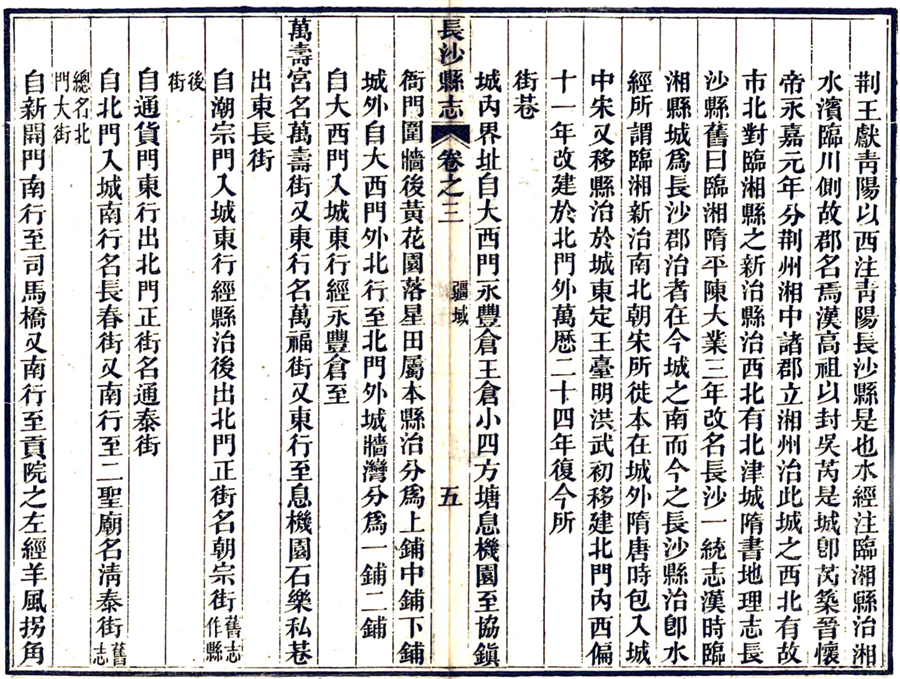 荆王獻靑陽以西注靑陽長沙縣是也水經注臨湘縣治湘
水濱臨川側故郡名焉漢高祖以封吳芮是城卽芮築晉懷
帝永嘉元年分荆州湘中諸郡立湘州治此城之西北有故
市北對臨湘縣之新治縣治西北有北津城隋書地理志長
沙縣舊曰臨湘隋平陳大業三年改名長沙一統志漢時臨
湘縣城爲長沙郡治者在今城之南而今之長沙縣治卽水
經所謂臨湘新治南北朝宋所徙本在城外隋唐時包入城
中宋又移縣治於城東定王臺明洪武初移建北門內西偏
十一年改建於北門外萬歷二十四年復今所
街巷
城內界址自大西門永豐倉王倉小四方塘息機園至協鎭
長沙縣志 卷之三 疆域 五
衙門圍牆後黃花園落星田屬本縣治分爲上鋪中鋪下鋪
城外自大西門外北行至北門外城牆灣分爲一鋪二鋪
自大西門入城東行經永豐倉至
萬壽宮名萬壽街又東行名萬福街又東行至息機園石樂私巷
出東長街
自潮宗門入城東行經縣治後出北門正街名朝宗街舊志作縣
後街
自通貨門東行出北門正街名通泰街
自北門入城南行名長春街又南行至二聖廟名淸泰街舊志
總名北門大街
自新開門南行至司馬橋又南行至貢院之左經羊風拐角